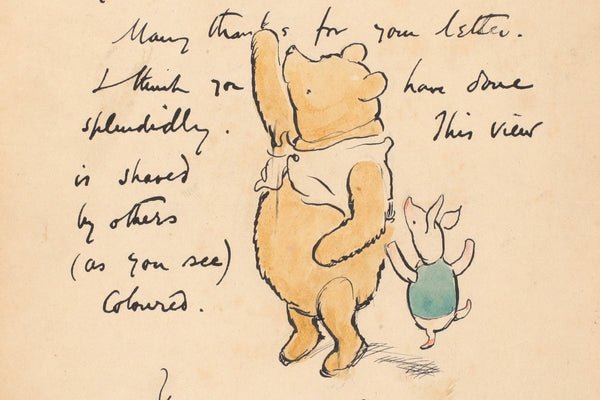 Many thanks for your letter.
I think you have done
splendidly. This view
is shared
by others
(as you see)
Coloured.